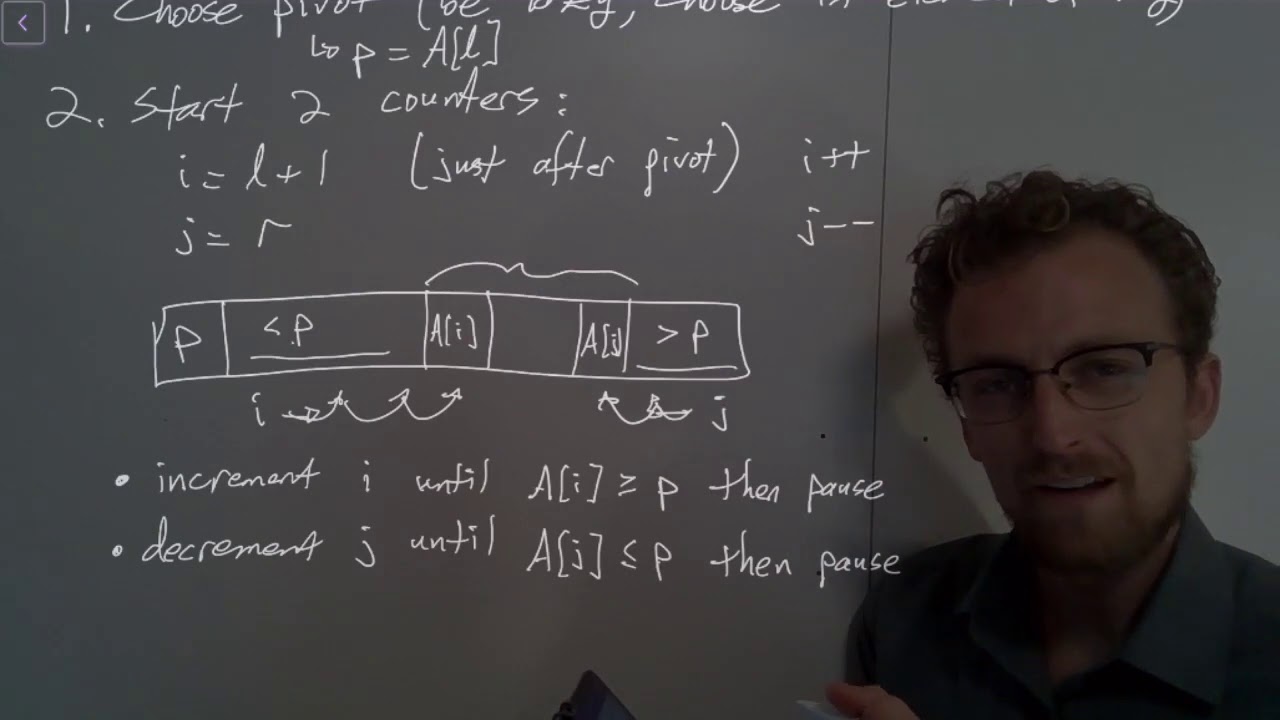 1. Choose pivot (be lazy, choose
↳ p = A[l]
2. Start 2 counters:
i = l + 1 (just after pivot) i++
j = r j--
P < P A[i] A[j] > P
i j
• increment i until A[i] ≥ p then pause
• decrement j until A[j] ≤ p then pause